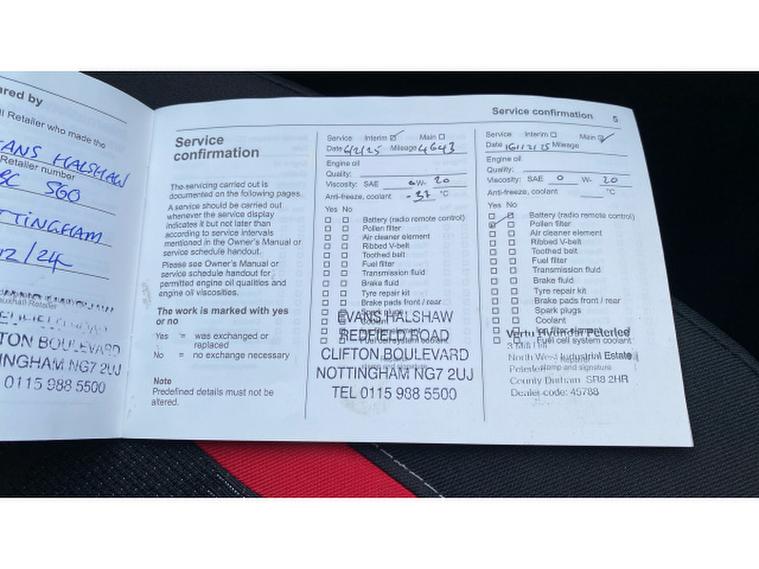 ared by
ll Retailer who made the
ANS HALSHAW
Retailer number
BC 560
TTINGHAM
12/24
TON BOULEVARD
INGHAM NG7 2UJ
0115 988 5500
Service
confirmation
The servicing carried out is
documented on the following pages.
A service should be carried out
whenever the service display
indicates it but not later than
according to service intervals
mentioned in the Owner's Manual or
service schedule handout.
Please see Owner's Manual or
service schedule handout for
permitted engine oil qualities and
engine oil viscosities.
The work is marked with yes
or no
Yes = was exchanged or
replaced
No = no exchange necessary
Note
Predefined details must not be
altered.
Service Interim Main
Date 6/2/25 Mileage 4643
Engine oil
Quality:
Viscosity: SAE 0 W- 20
Anti-freeze, coolant -37 °C
Yes No
Battery (radio remote control)
Pollen filter
Air cleaner element
Ribbed V-belt
Toothed belt
Fuel filter
Transmission fluid
Brake fluid
Tyre repair kit
Brake pads front / rear
EVANS HALSHAW
REDFIELD ROAD
CLIFTON BOULEVARD
NOTTINGHAM NG7 2UJ
TEL 0115 988 5500
Service confirmation 5
Service Interim Main
Date 16/12/25 Mileage
Engine oil
Quality:
Viscosity: SAE 0 W- 20
Anti-freeze, coolant °C
Yes No
Battery (radio remote control)
Pollen filter
Air cleaner element
Ribbed V-belt
Toothed belt
Fuel filter
Transmission fluid
Brake fluid
Tyre repair kit
Brake pads front / rear
Spark plugs
Coolant
Vertu Hyundai Peterlee
Fuel cell system coolant
North West Industrial Estate
Peterlee
stamp and signature
County Durham SR8 2HR
Dealer code: 45788